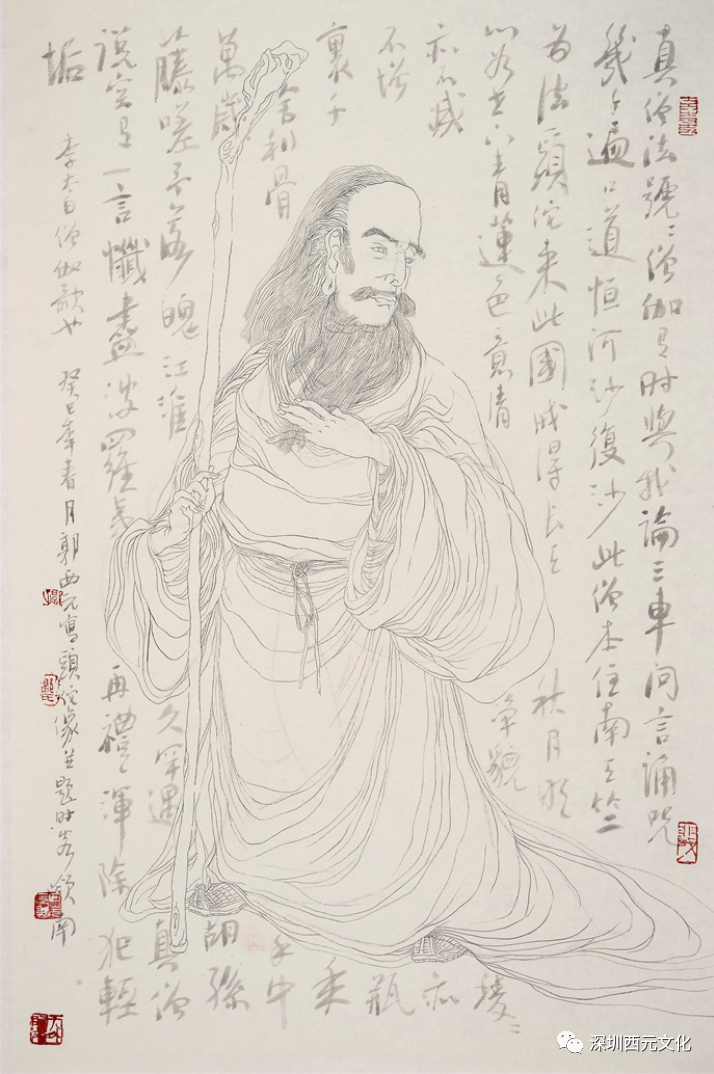 真僧法號〻僧伽有时與我論三車问言誦咒
幾千遍口道恒河沙復沙此僧本住南天竺
为法頭陀来此國戒得长天秋月明
心如世上青蓮色意清淨貌稜〻
亦不减亦
不增瓶
裏千年
舍利骨手中
萬歲胡孫
藤嗟予落魄江淮久罕遇真僧
说空有一言懺盡波羅夷再禮渾除犯輕
垢
李太白僧伽歌也 癸巳年春月郭西元寫頭陀像並題时客嶺南
深圳西元文化